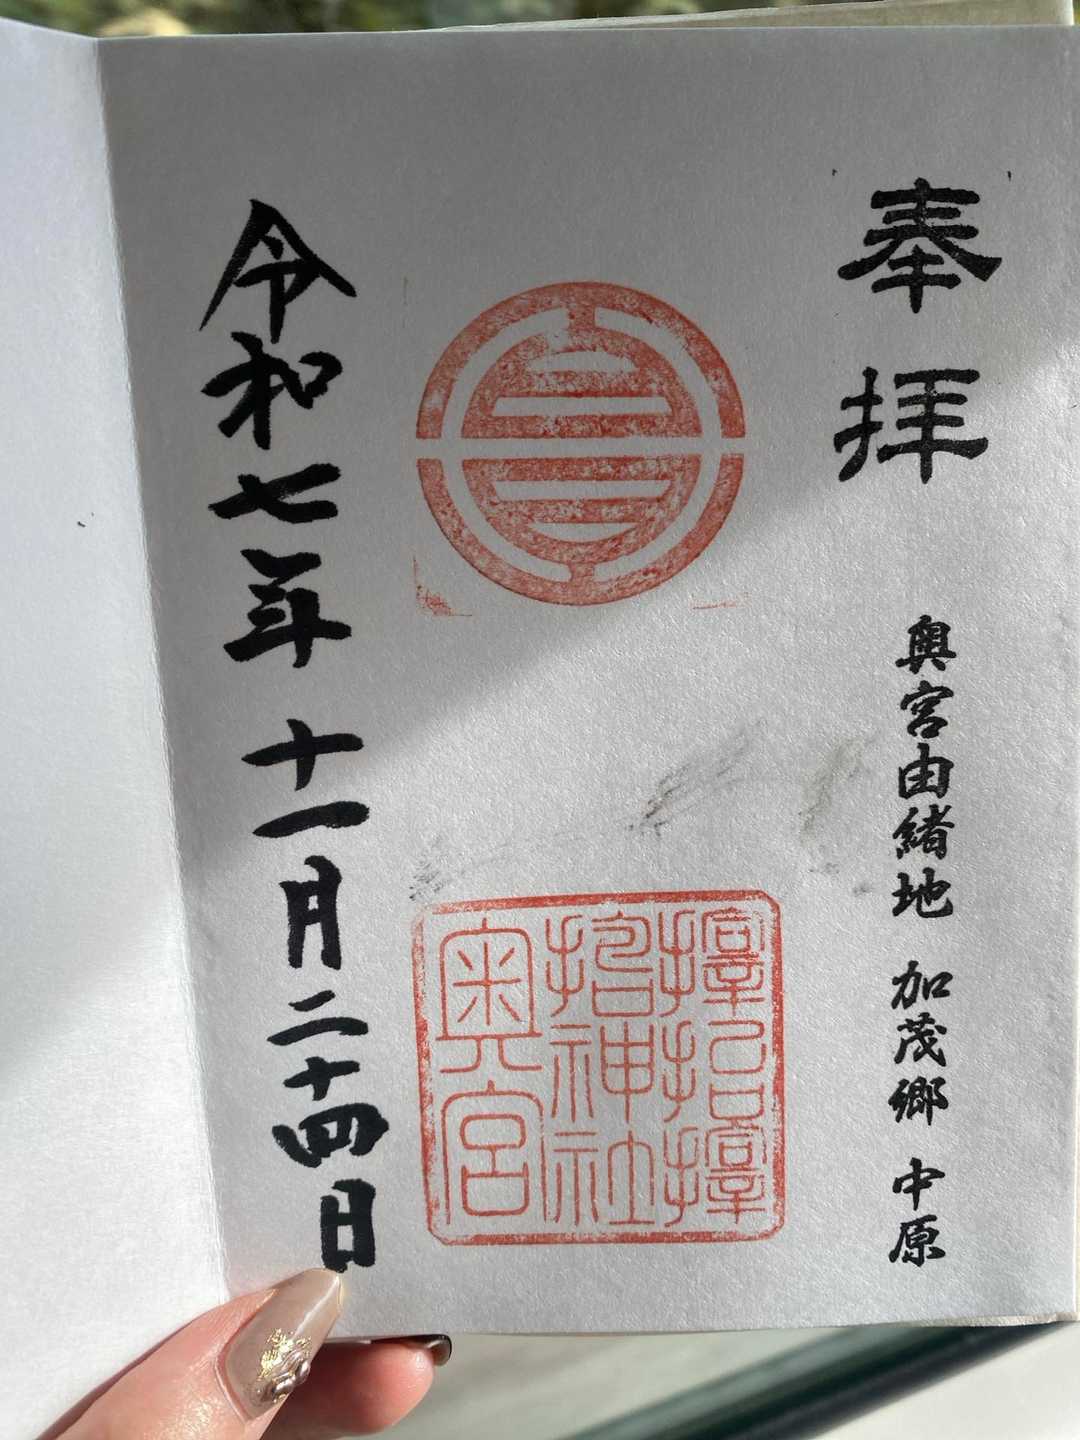 奉拝
奥宮由緒地 加茂郷 中原
神社
奥宮
令和七年 十一月 二十四日